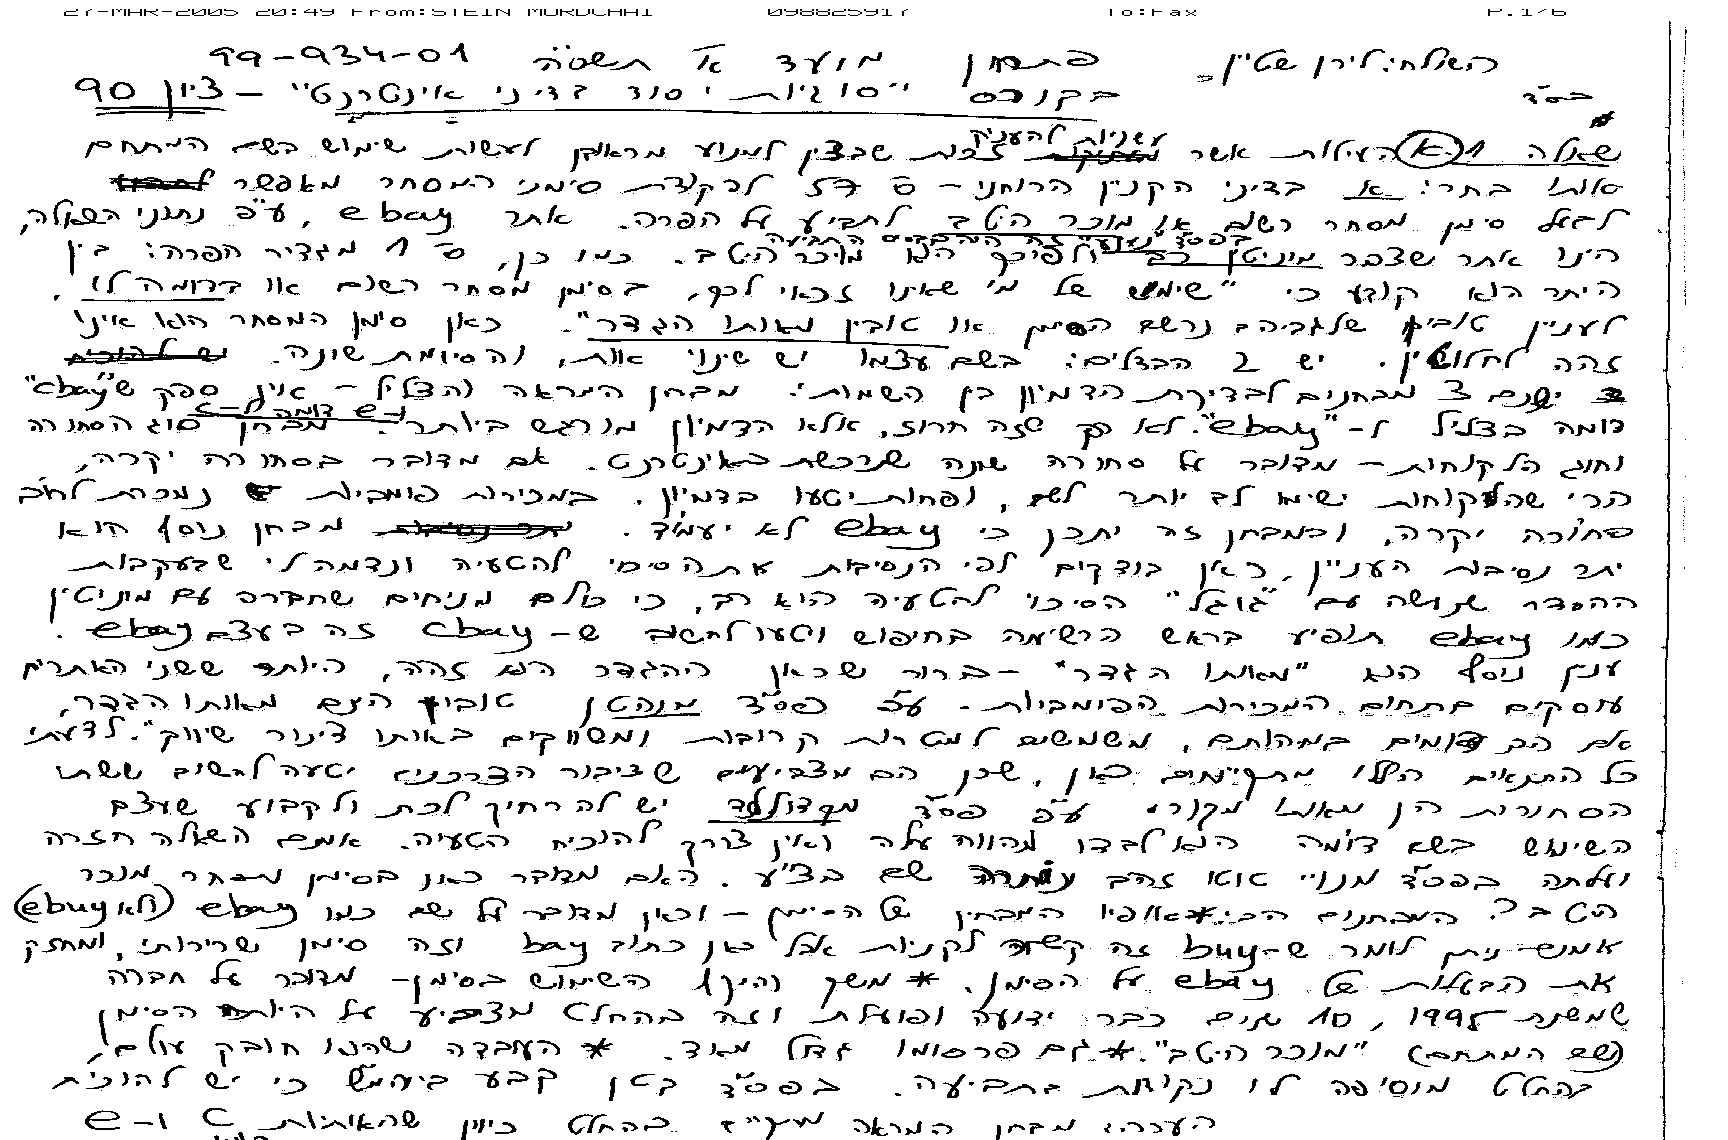 27-MAR-2005 20:49 From:STEIN MORDCHAI 098825917 To:Fax P.1/6
השולח: לירן שטיין פתחון מועד א' תשס"ה 99-934-01
בס"ד בקורס "סוגיות יסוד בדיני אינטרנט" – ציון 90
עשויות להעניק
שאלה 1 א העילות אשר זכות שבצין למנוע מראובן לעשות שימוש בשם המתחם
אותו בחר: א בדיני הקניין הרוחני – ס' 57 לפקודת סימני המסחר מאפשר
לבעל סימן מסחר רשום או מוכר היטב לתביע על הפרה. אתר ebay, ע"פ נתוני השאלה,
הינו אתר שצבר מוניטין רב ולפיכך הוא מוכר היטב. כמו כן, ס' 1 מגדיר הפרה: בין
היתר הוא קובע כי "שימוש של מי שאינו זכאי לכך, בסימן מסחר רשום או בדומה לו,
לעניין טובין שלגביהם נרשם הסימן או טובין מאותו הגדר". כאן סימן המסחר הוא אינו
זהה לחלוטין. יש 2 הבדלים: בשם עצמו יש שינוי אות, והסיומת שונה.
ישנם 3 מבחנים לבדיקת הדמיון בין השמות: מבחן המראה והצליל – אין ספק ש"cbay"
דומה בצליל ל-"ebay". לא רק שזה חרוז, אלא הדמיון מורגש ביותר. מבחן סוג הסחורה
וחוג הלקוחות – מדובר על סחורה שונה שנרכשת באינטרנט. אם מדובר בסחורה יקרה,
הרי שהלקוחות ישימו לב יותר לשם, ופחות יטעו בדמיון. במכירות פומביות נמכרת לרוב
סחורה יקרה, ובמבחן זה יתכן כי ebay לא יעמוד. מבחן נוסף הוא
יתר נסיבות העניין, כאן בודקים לפי הנסיבות את הסיכוי להטעיה ונדמה לי שבעקבות
ההסדר שנעשה עם "גוגל" הסיכוי להטעיה הוא רב, כי כולם מניחים שחברה עם מוניטין
כמו ebay תופיע בראש הרשימה בחיפוש ויטעו לחשוב ש-cbay זה בעצם ebay.
עניין נוסף הוא "מאותו הגדר" – ברור שכאן ההגדר הוא זהה, היות ששני האתרים
עוסקים בתחום המכירות הפומביות. ע"פ פס"ד מנהטן טובין הינם מאותו הגדר,
אם הם דומים במהותם, משמשים למטרות קרובות ומשווקים באותו צינור שיווק". לדעתי
כל התנאים הללו מתקיימים כאן, שכן הם מצביעים שציבור הצרכנים יטעה לחשוב ששתי
הסחורות הן מאותו מקור. ע"פ פס"ד מקדונלד יש להרחיק לכת ולקבוע שעצם
השימוש בשם דומה הוא לבדו מהווה עילה ואין צורך להוכיח הטעיה. אמנם השאלה חזרה
ועלתה בפס"ד מנויי טוטו זהב שם בצ"ע. האם מדובר כאן בסימן מסחר מוכר
היטב? המבחנים הם: *אופיו המבחין של הסימן – וכאן מדובר על שם כמו ebay (ולא ebuy)
אמנם ניתן לומר ש-buy זה קשור לקניות אבל כאן כתוב bay וזה סימן שרירותי, ומחזק
את הבעלות של ebay על הסימן. * משך והיקף השימוש בסימן – מדובר על חברה
שמשנת 1995, 10 שנים כבר ידועה ופועלת וזה בהחלט מצביע על היות הסימן
(שם המתחם) "מוכר היטב". * גם פרסומו גדול מאוד. * העובדה שהוא חובק עולם,
בהחלט מוסיפה לו נקודות בתביעה. בפס"ד בטן קבע ביהמ"ש כי יש להוכיח
הערה: מבחן המראה בהחלט כיוון שהאותיות c ו-e